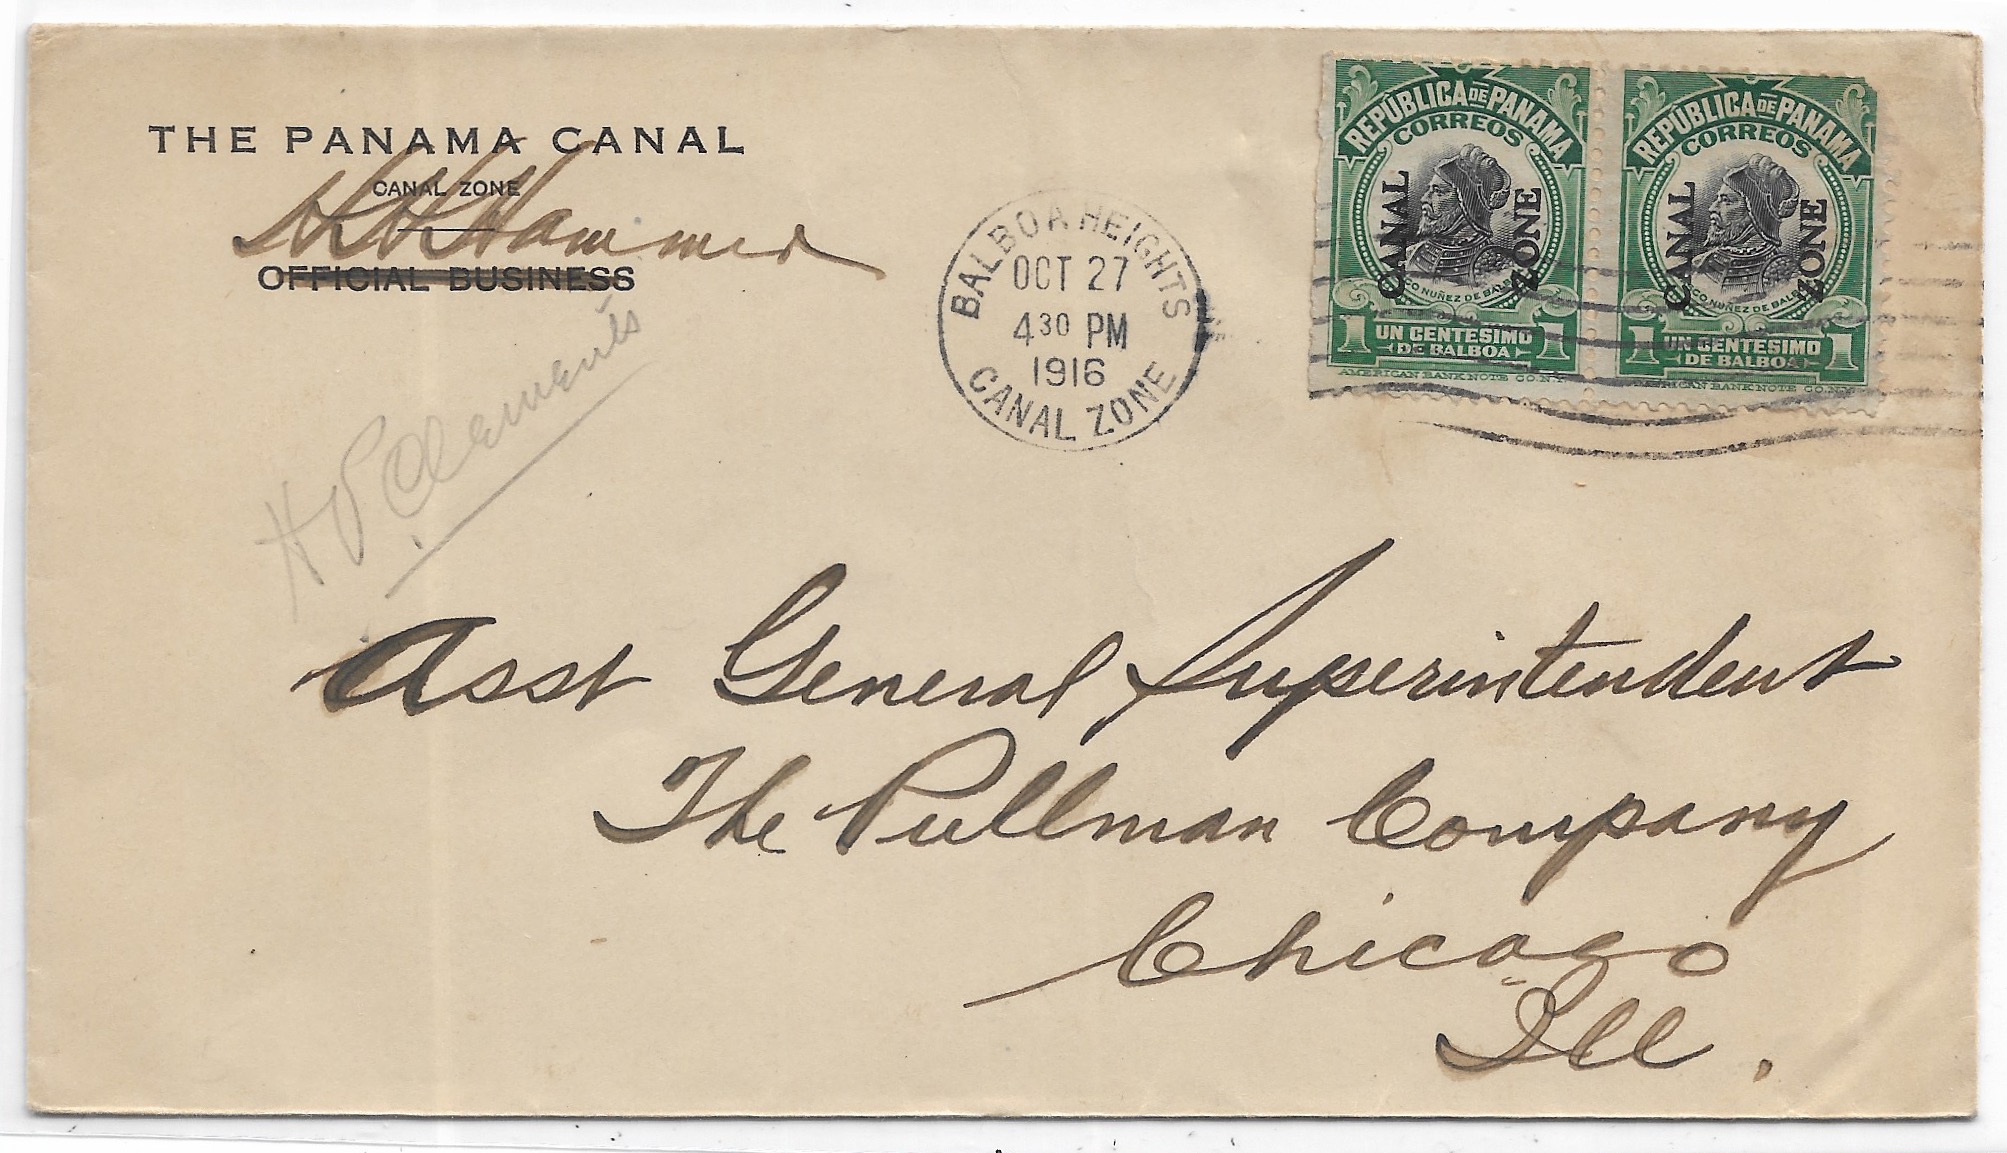 THE PANAMA CANAL
CANAL ZONE
Hammer
OFFICIAL BUSINESS
H P Clements
BALBOA HEIGHTS
OCT 27
4 30 PM
1916
CANAL ZONE
REPÚBLICA DE PANAMA
CORREOS
CANAL ZONE
NUÑEZ DE BALB
1 UN CENTESIMO 1
DE BALBOA
AMERICAN BANK NOTE CO. N.Y.
REPÚBLICA DE PANAMA
CORREOS
CANAL ZONE
CO NUÑEZ DE BALB
1 UN CENTESIMO 1
DE BALBOA
AMERICAN BANK NOTE CO. N.Y.
Asst General Superintendent
The Pullman Company
Chicago
Ill.